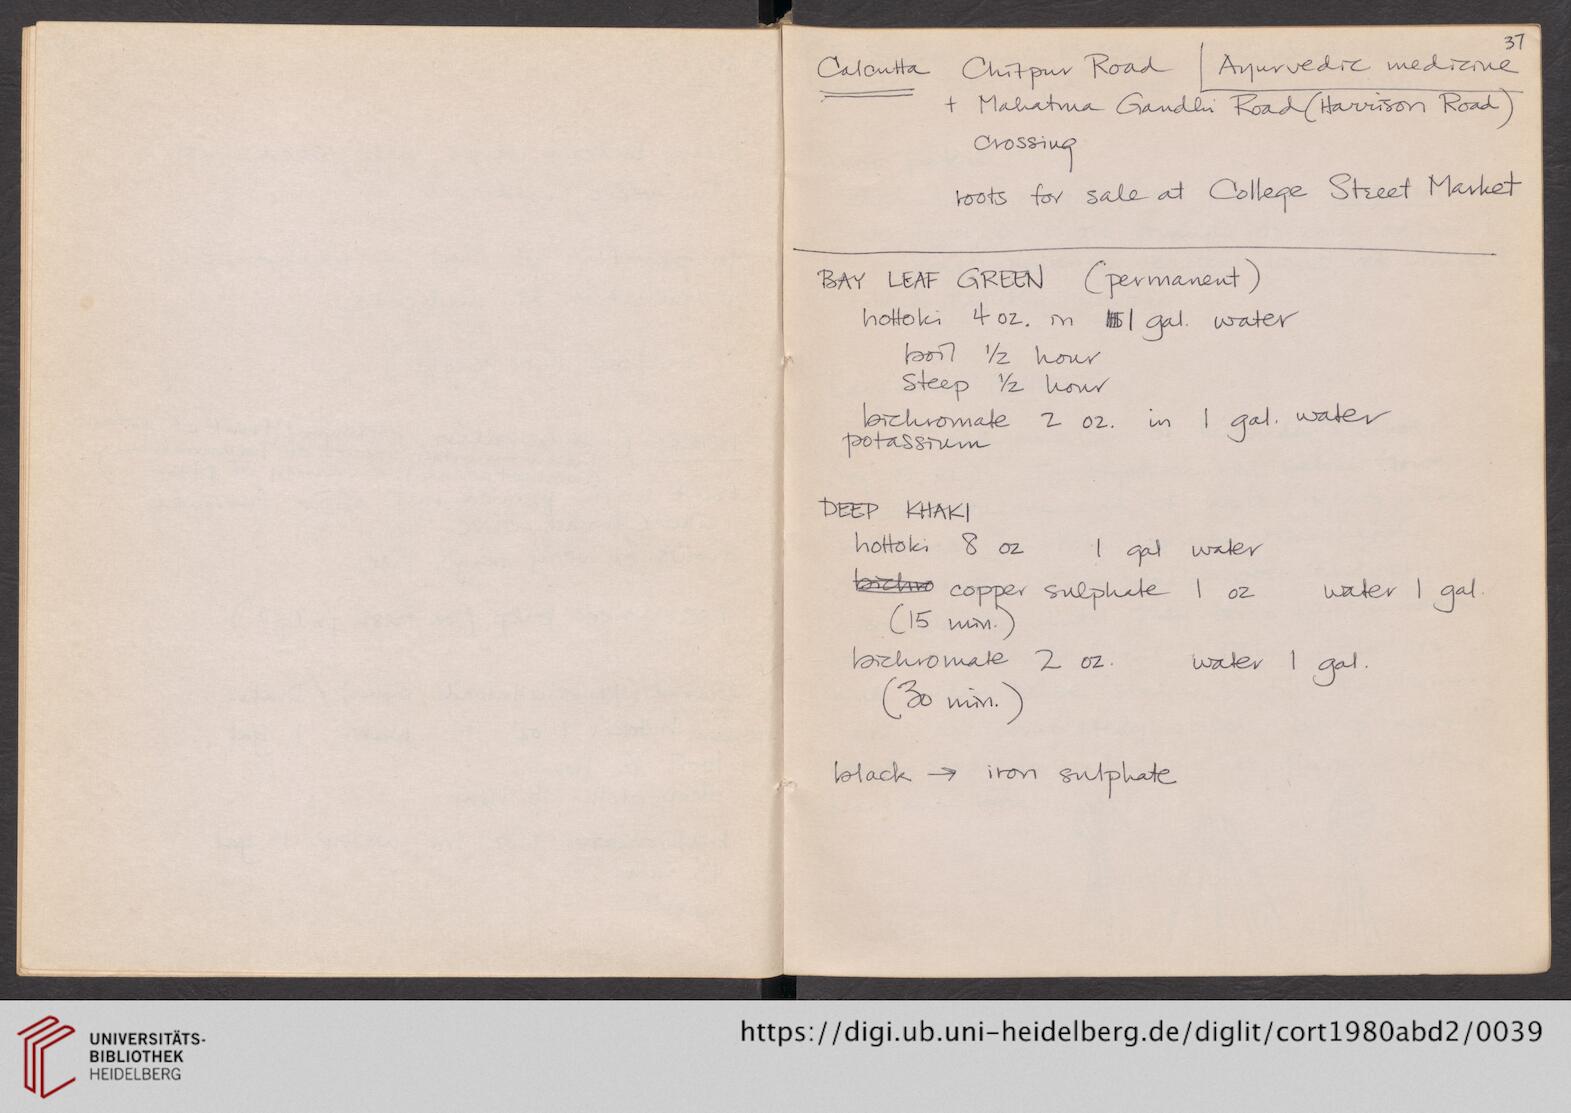 37
Calcutta Chitpur Road Ayurvedic medicine
+ Mahatma Gandhi Road (Harrison Road)
crossing
roots for sale at College Street Market
BAY LEAF GREEN (permanent)
hottoki 4 oz. in 1 gal. water
boil 1/2 hour
steep 1/2 hour
bichromate 2 oz. in 1 gal. water
potassium
DEEP KHAKI
hottoki 8 oz 1 gal water
bichro copper sulphate 1 oz water 1 gal.
(15 min.)
bichromate 2 oz. water 1 gal.
(30 min.)
black → iron sulphate
UNIVERSITÄTS-
BIBLIOTHEK
HEIDELBERG
https://digi.ub.uni-heidelberg.de/diglit/cort1980abd2/0039